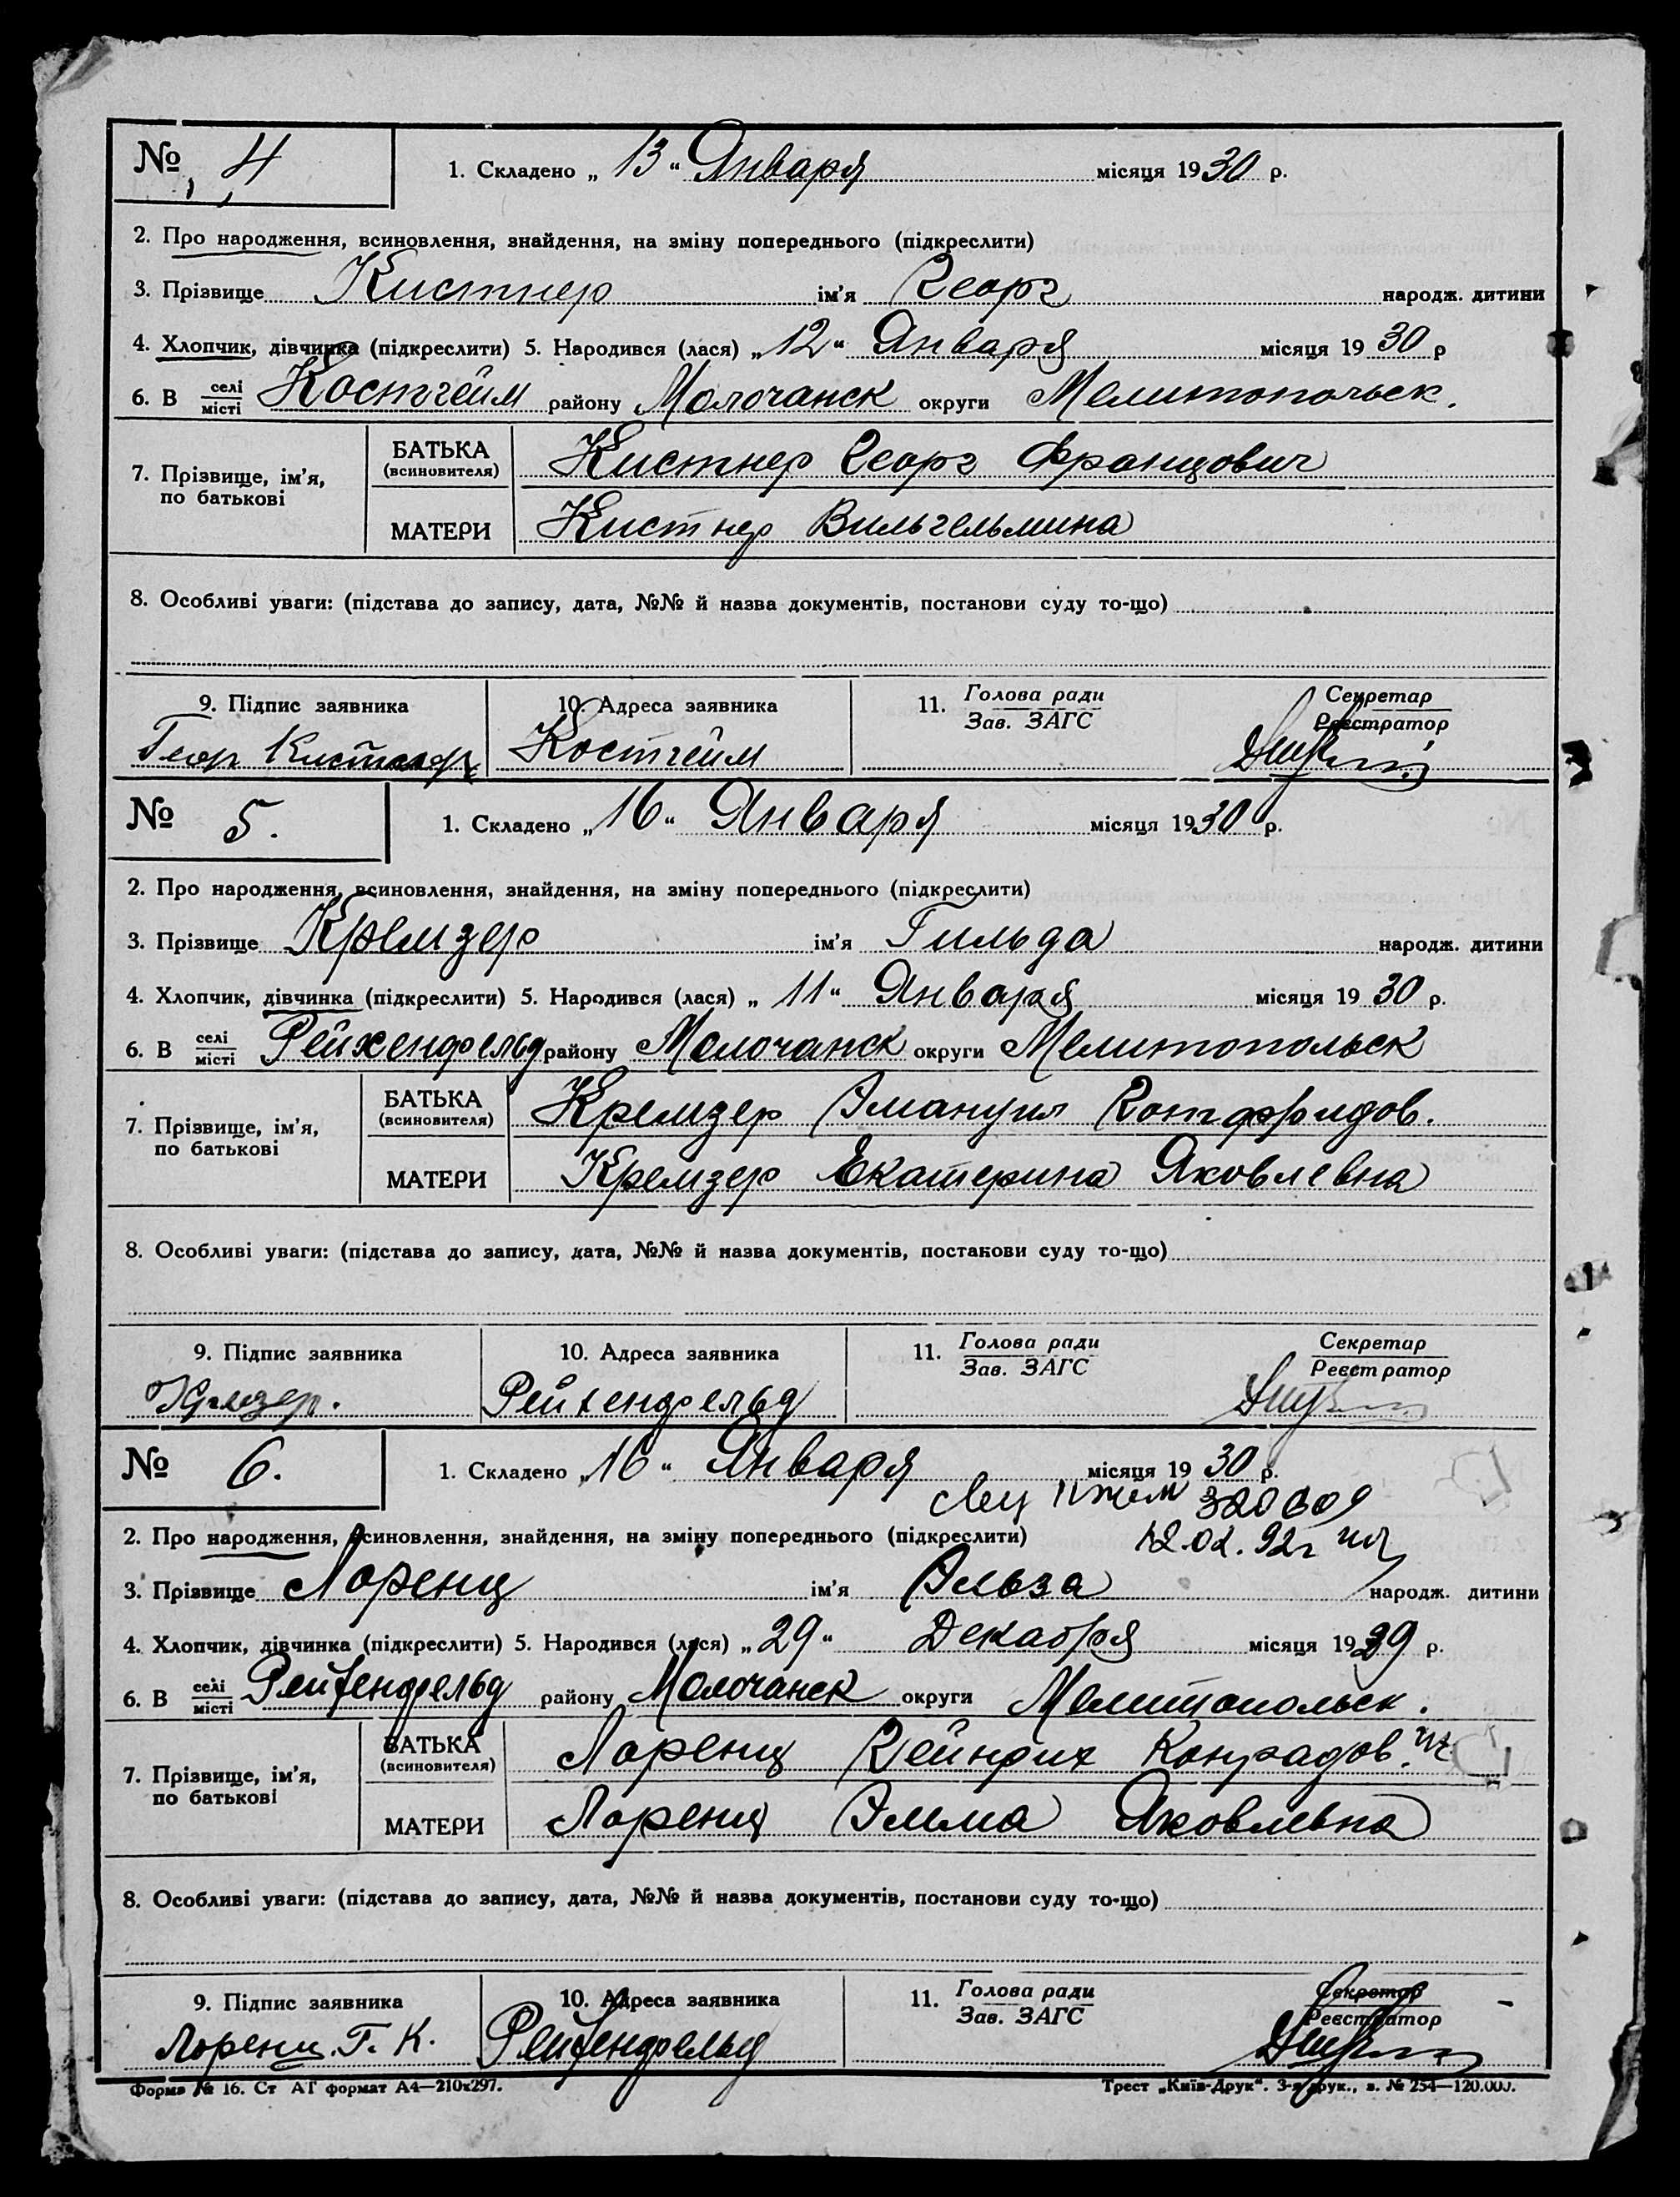 № 4 1. Складено „ 13 “ Января місяця 1930 р.
2. Про народження, всиновлення, знайдення, на зміну попереднього (підкреслити)
3. Прізвище Кистнер ім’я Георг народж. дитини
4. Хлопчик, дівчинка (підкреслити) 5. Народився (лася) „ 12 “ Января місяця 19 30 р
6. В селі місті Костгейм району Молочанск округи Мелитопольск.
7. Прізвище, ім’я, по батькові
БАТЬКА (всиновителя) Кистнер Георг Францович
МАТЕРИ Кистнер Вильгельмина
8. Особливі уваги: (підстава до запису, дата, №№ й назва документів, постанови суду то-що)
9. Підпис заявника 10. Адреса заявника 11. Голова ради Зав. ЗАГС Секретар Реєстратор
Геор Костгейм
№ 5. 1. Складено „ 16 “ Января місяця 1930 р.
2. Про народження, всиновлення, знайдення, на зміну попереднього (підкреслити)
3. Прізвище Кремзер ім’я Гильда народж. дитини
4. Хлопчик, дівчинка (підкреслити) 5. Народився (лася) „ 11 “ Января місяця 19 30 р.
6. В селі місті Рейхенфельд району Молочанск округи Мелитопольск
7. Прізвище, ім’я, по батькові
БАТЬКА (всиновителя) Кремзер Эмануил Готфридов.
МАТЕРИ Кремзер Екатерина Яковлевна
8. Особливі уваги: (підстава до запису, дата, №№ й назва документів, постанови суду то-що)
9. Підпис заявника 10. Адреса заявника 11. Голова ради Зав. ЗАГС Секретар Реєстратор
Кремзер. Рейхенфельд
№ 6. 1. Складено „ 16 “ Января місяця 19 30 р.
320609
2. Про народження, всиновлення, знайдення, на зміну попереднього (підкреслити) 12.02.92г
3. Прізвище Лоренц ім’я Эльза народж. дитини
4. Хлопчик, дівчинка (підкреслити) 5. Народився (лася) „ 29 “ Декабря місяця 1929 р.
6. В селі місті Рейхенфельд району Молочанск округи Мелитопольск.
7. Прізвище, ім’я, по батькові
БАТЬКА (всиновителя) Лоренц Гейнрих Конрадов.ич
МАТЕРИ Лоренц Эмма Яковлевна
8. Особливі уваги: (підстава до запису, дата, №№ й назва документів, постанови суду то-що)
9. Підпис заявника 10. Адреса заявника 11. Голова ради Зав. ЗАГС Секретар Реєстратор
Лоренц. Г. К. Рейхенфельд
Форма № 16. Ст АГ формат А4—210х297. Трест „Київ-Друк“. 3-я друк., з. № 254—120.000.